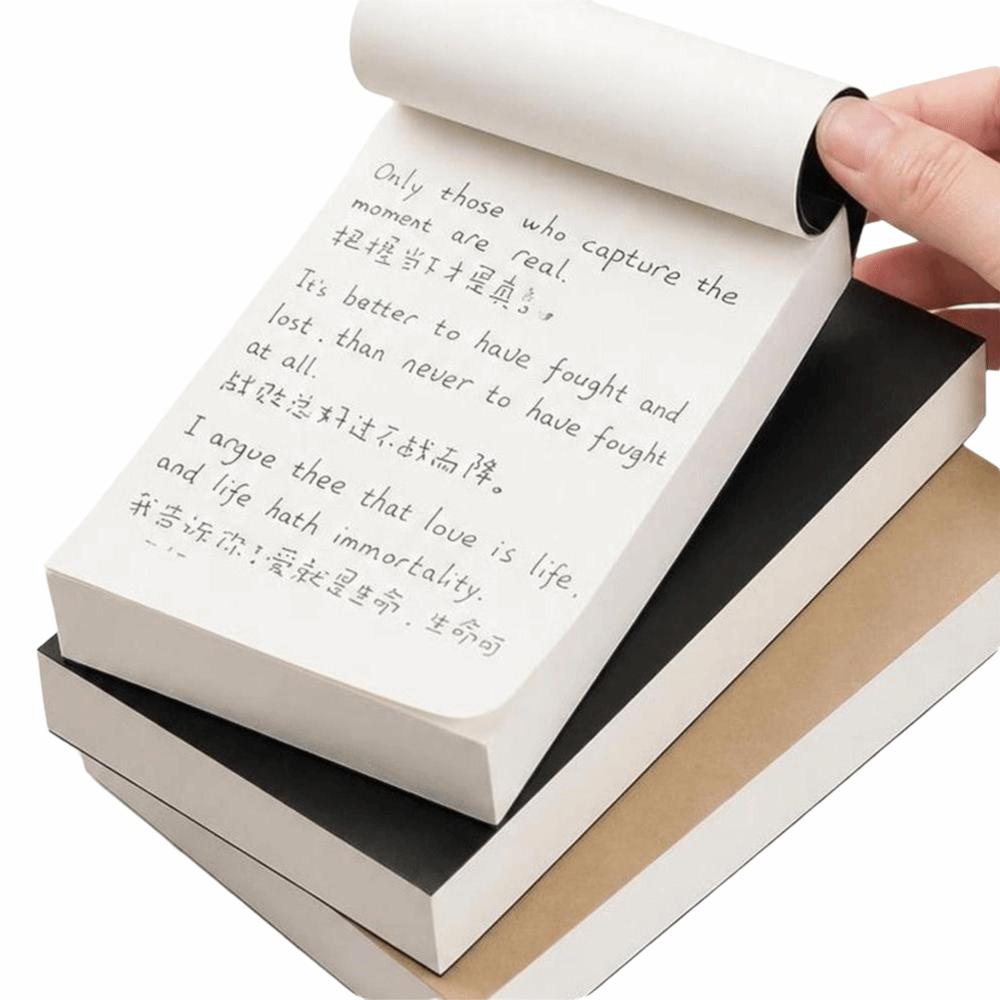 Only those who capture the
moment are real.
把握当下才是真
It's better to have fought and
lost. than never to have fought
at all.
战败总好过不战而降。
I argue thee that love is life.
and life hath immortality.
我告诉你！爱就是生命．生命可